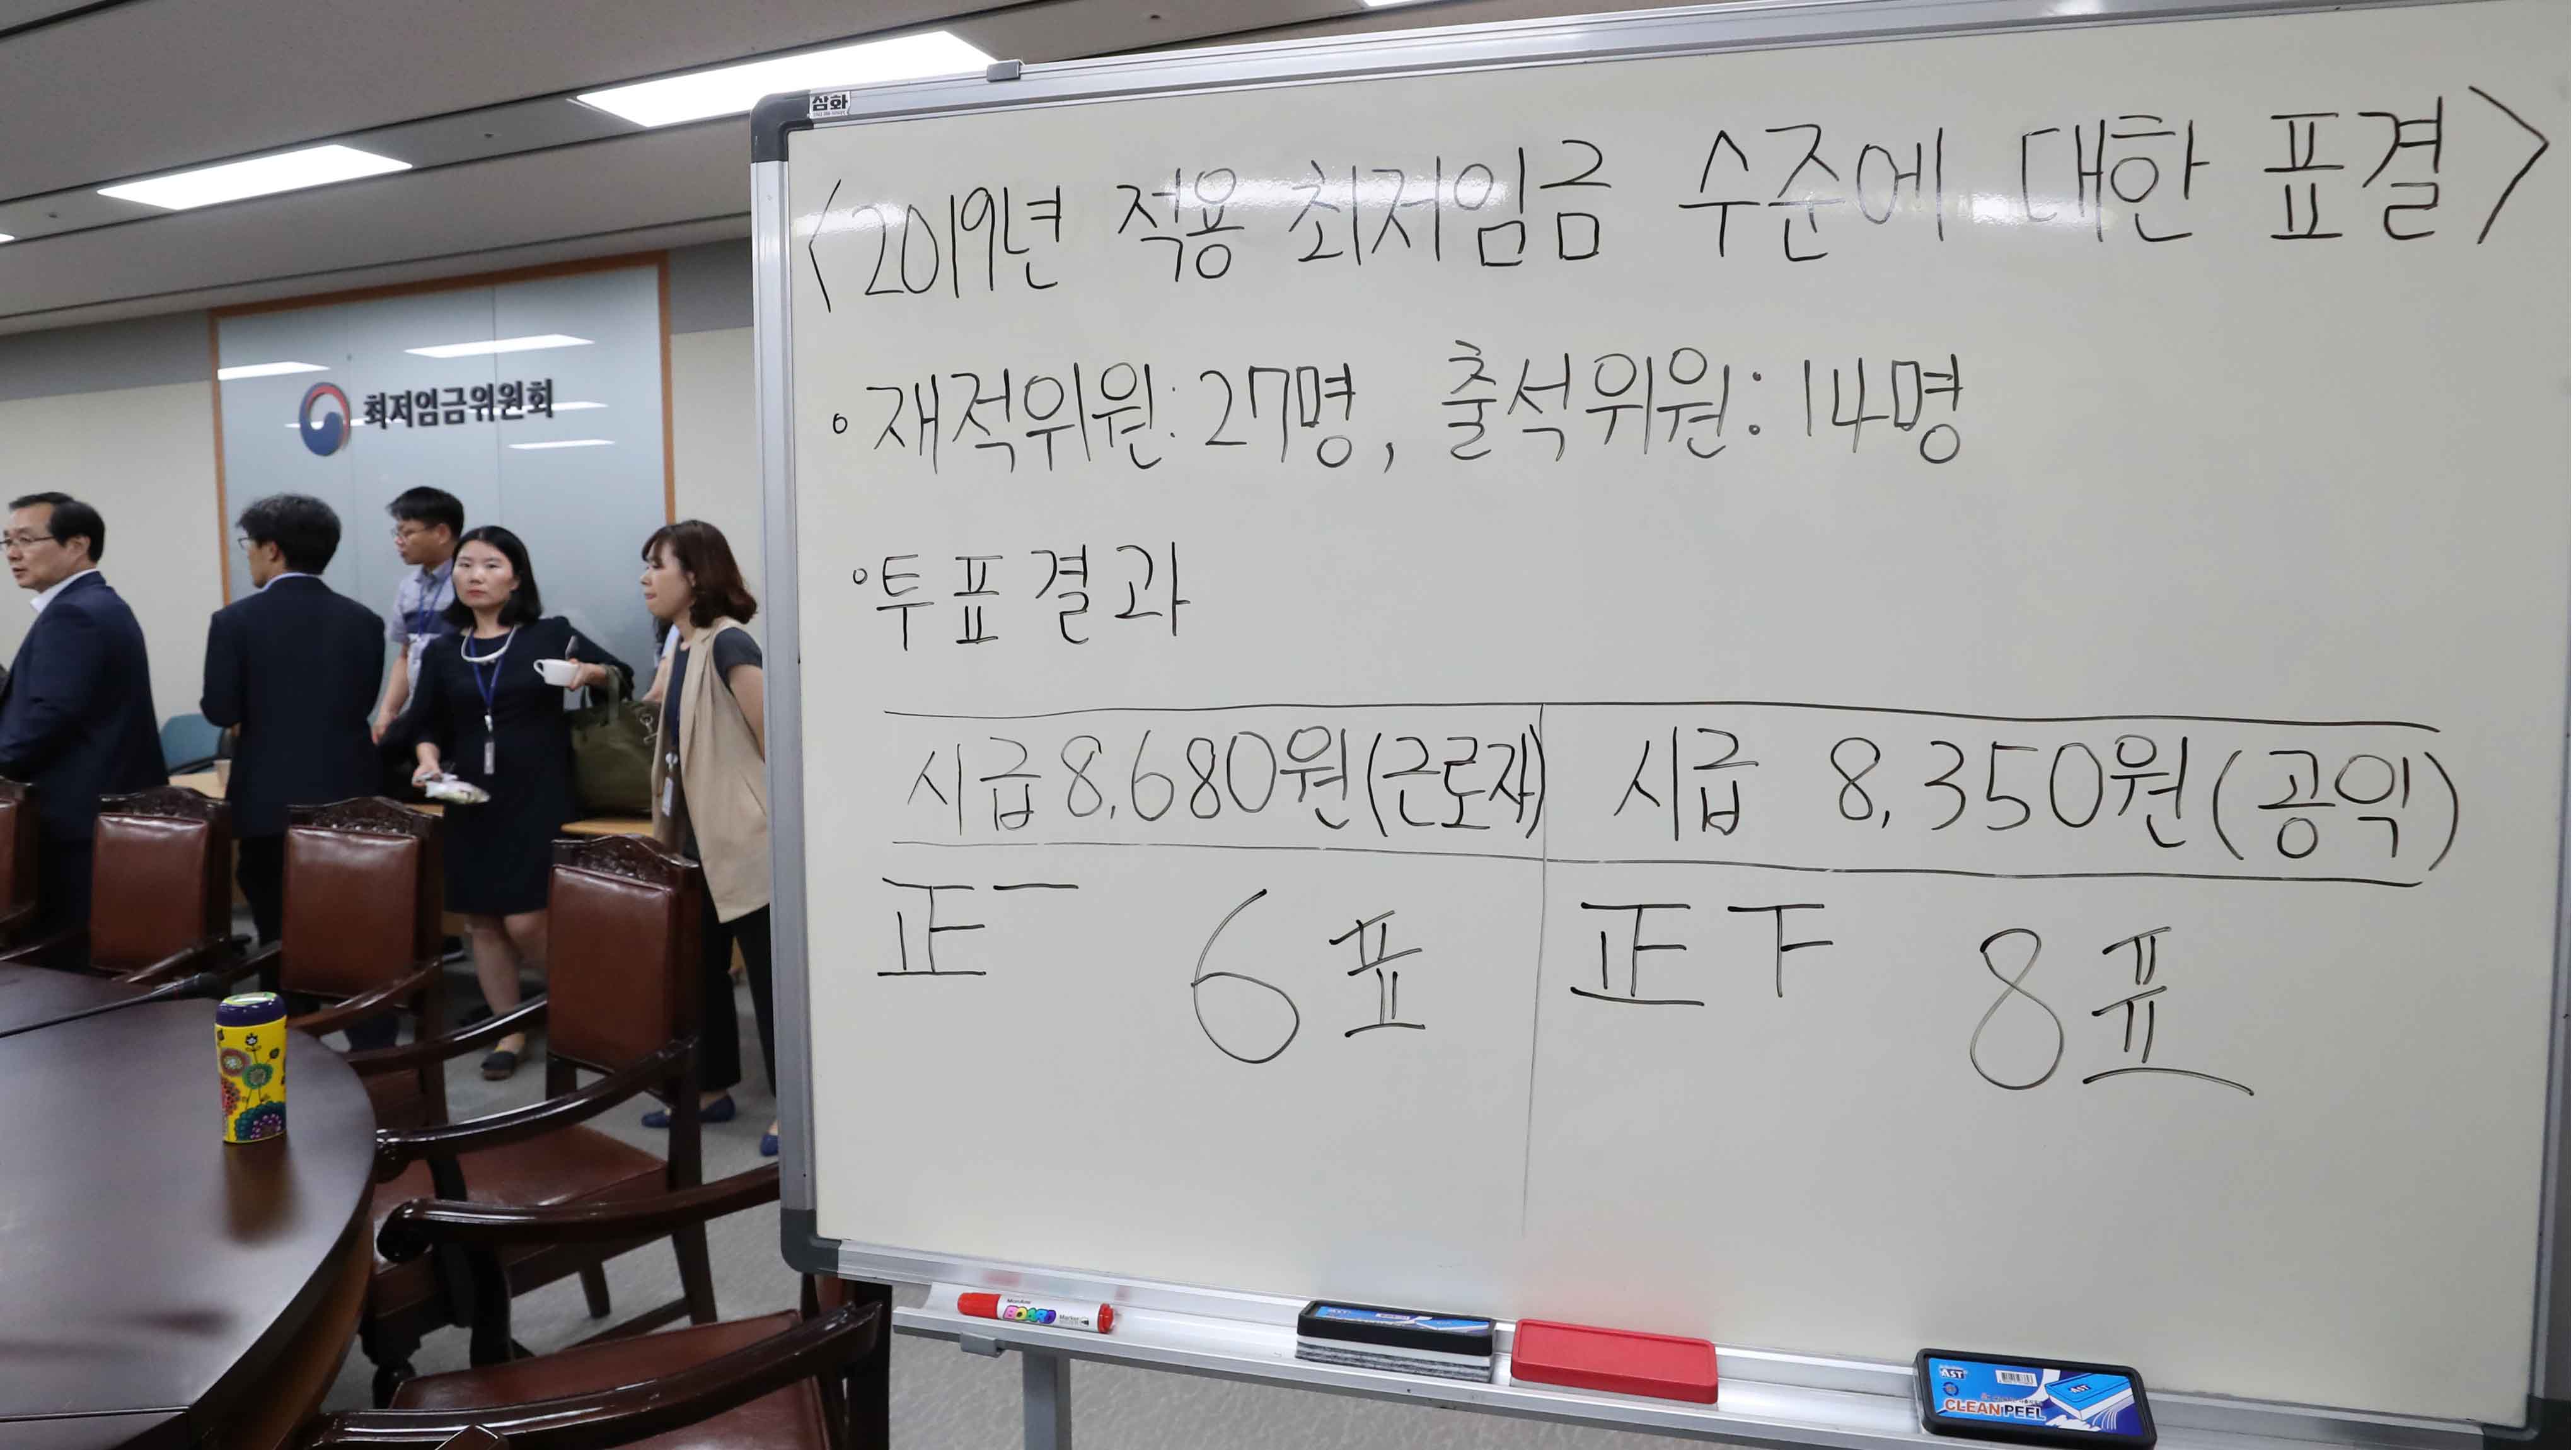 삼화
<2019년 적용 최저임금 수준에 대한 표결>
최저임금위원회
◦재적위원: 27명, 출석위원: 14명
◦투표결과
시급 8,680원(근로자) 시급 8,350원(공익)
正一 6표 正下 8표
BOARD Marker
AST
AST
CLEAN PEEL